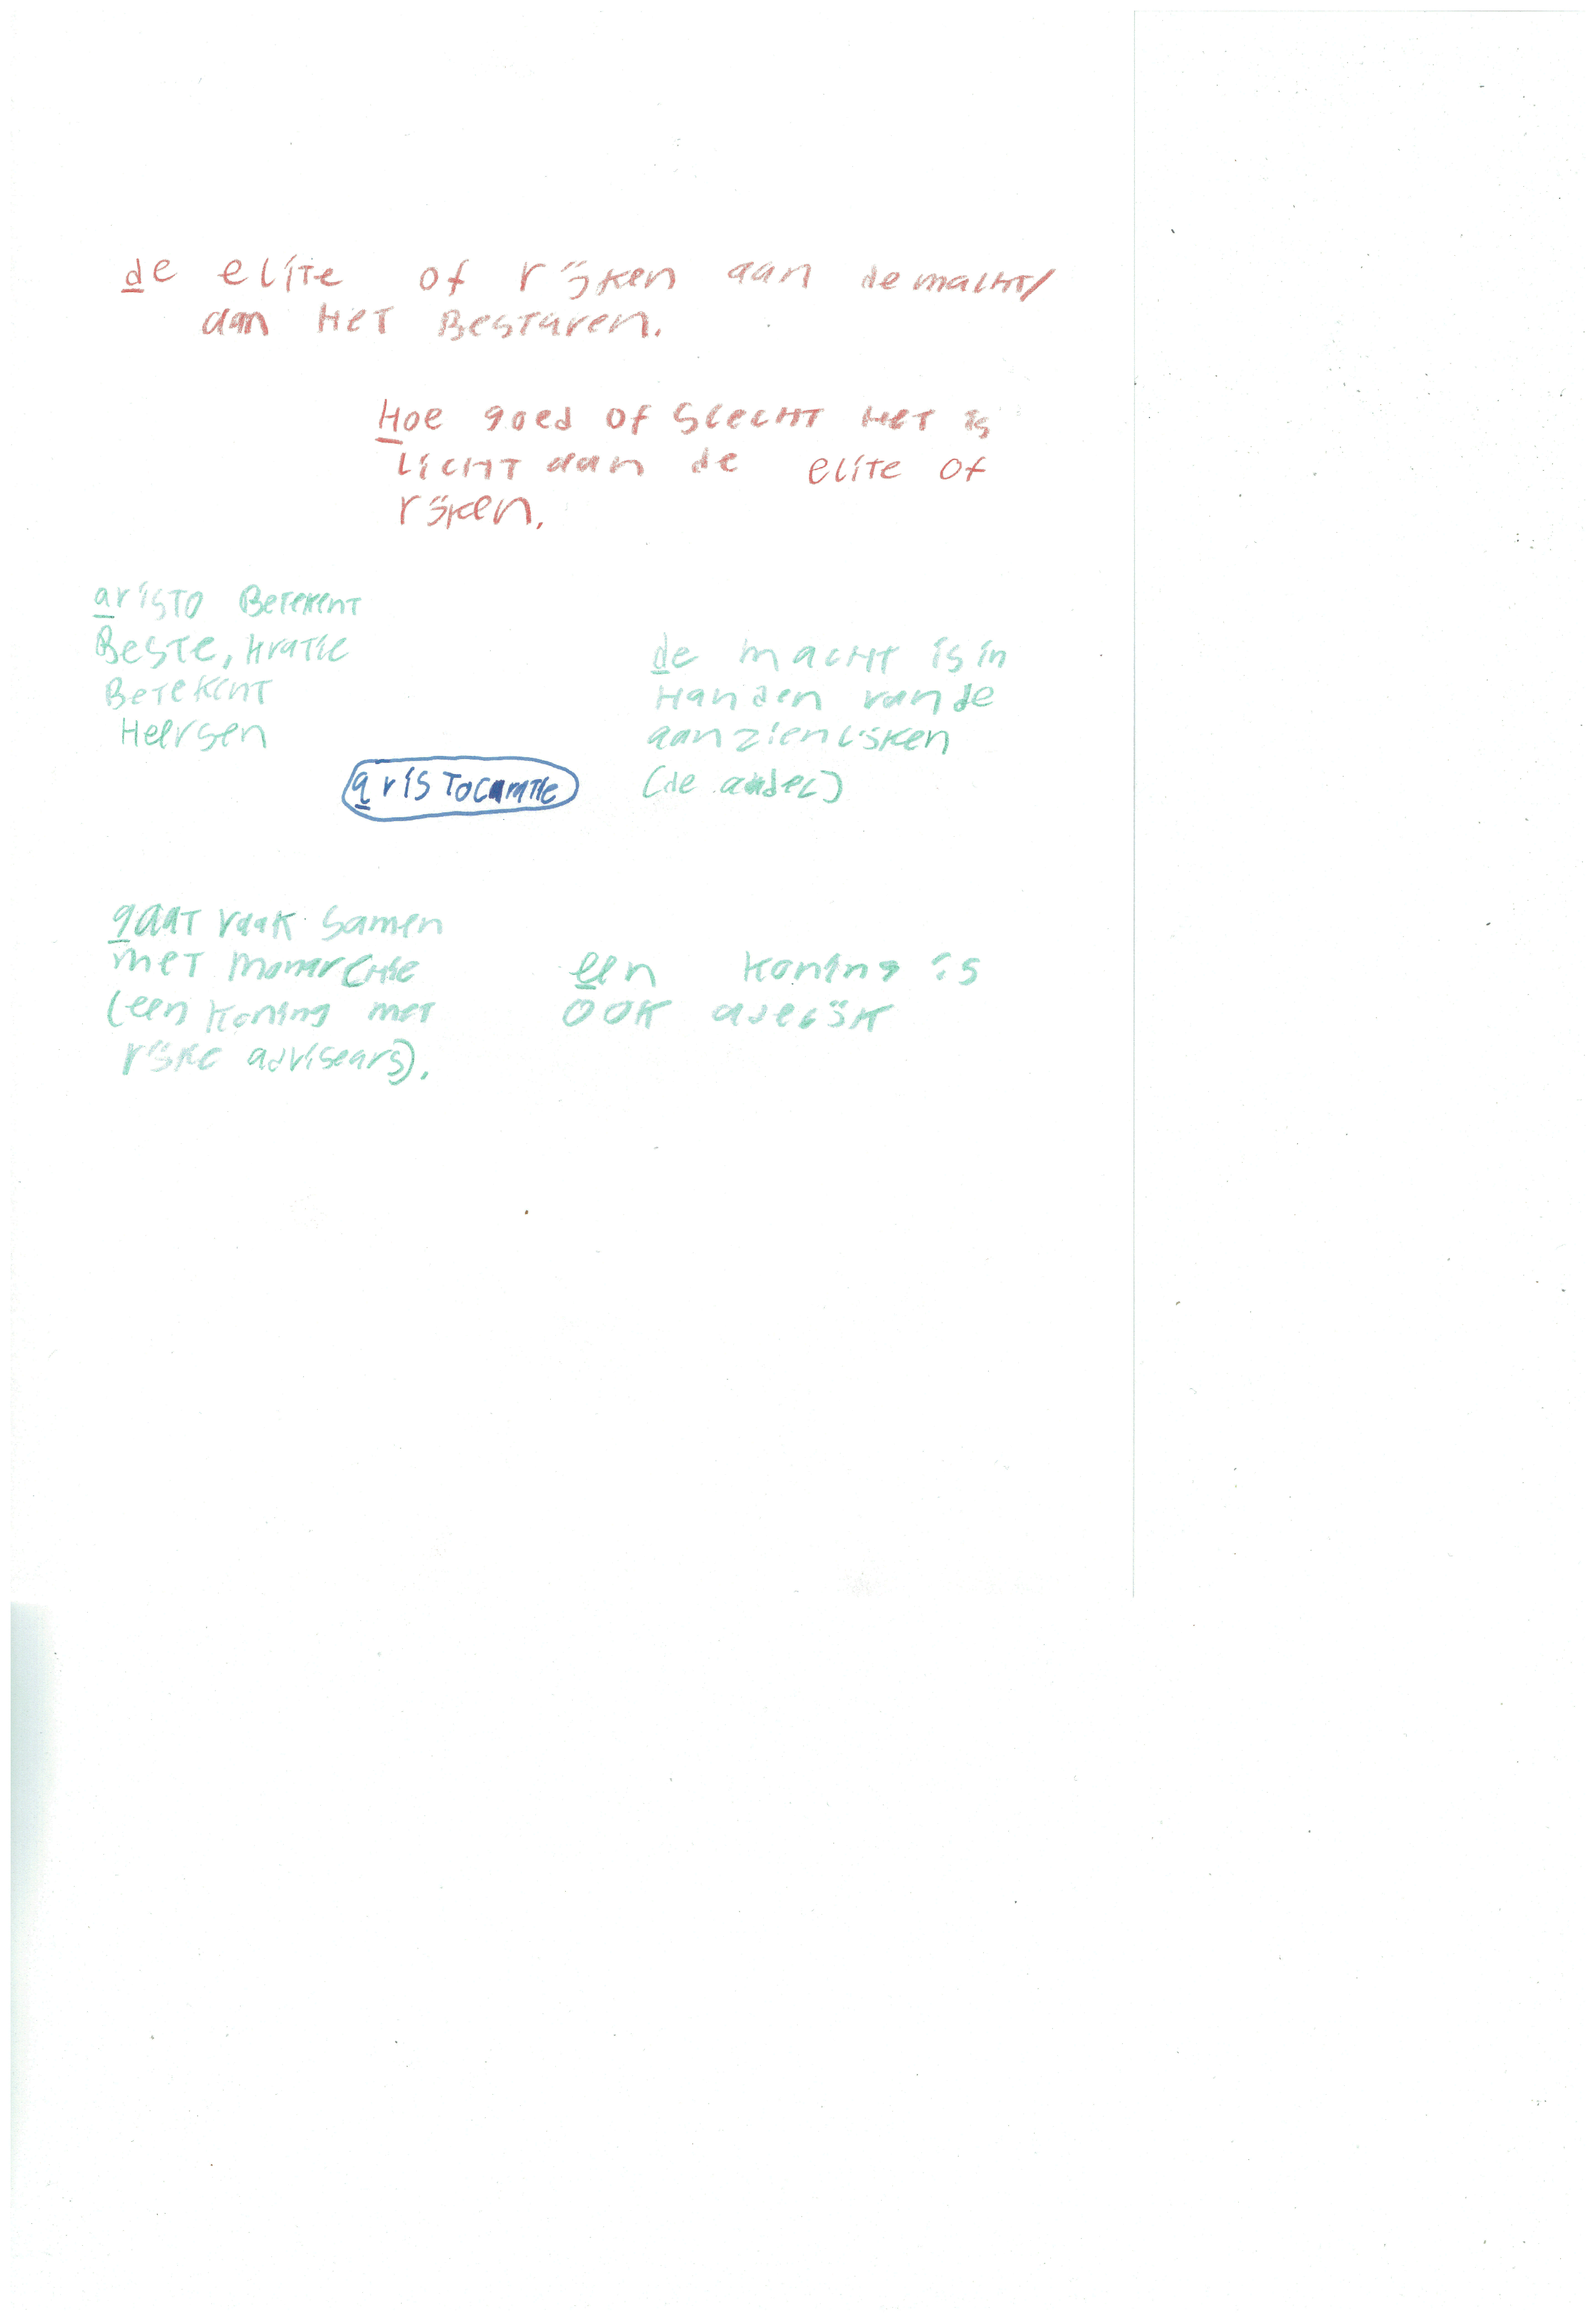 de elite of rijken aan de macht/
aan Het Besturen.
Hoe goed of slecht Het is
licht aan de elite of
rijken.
aristo Betekent
Beste, kratie
Betekent
Heersen
de macht is in
Handen van de
aanzienlijken
(de adel)
aristocratie
gaat vaak samen
met monarchie
(een koning met
rijke adviseurs).
een koning is
ook adelijk